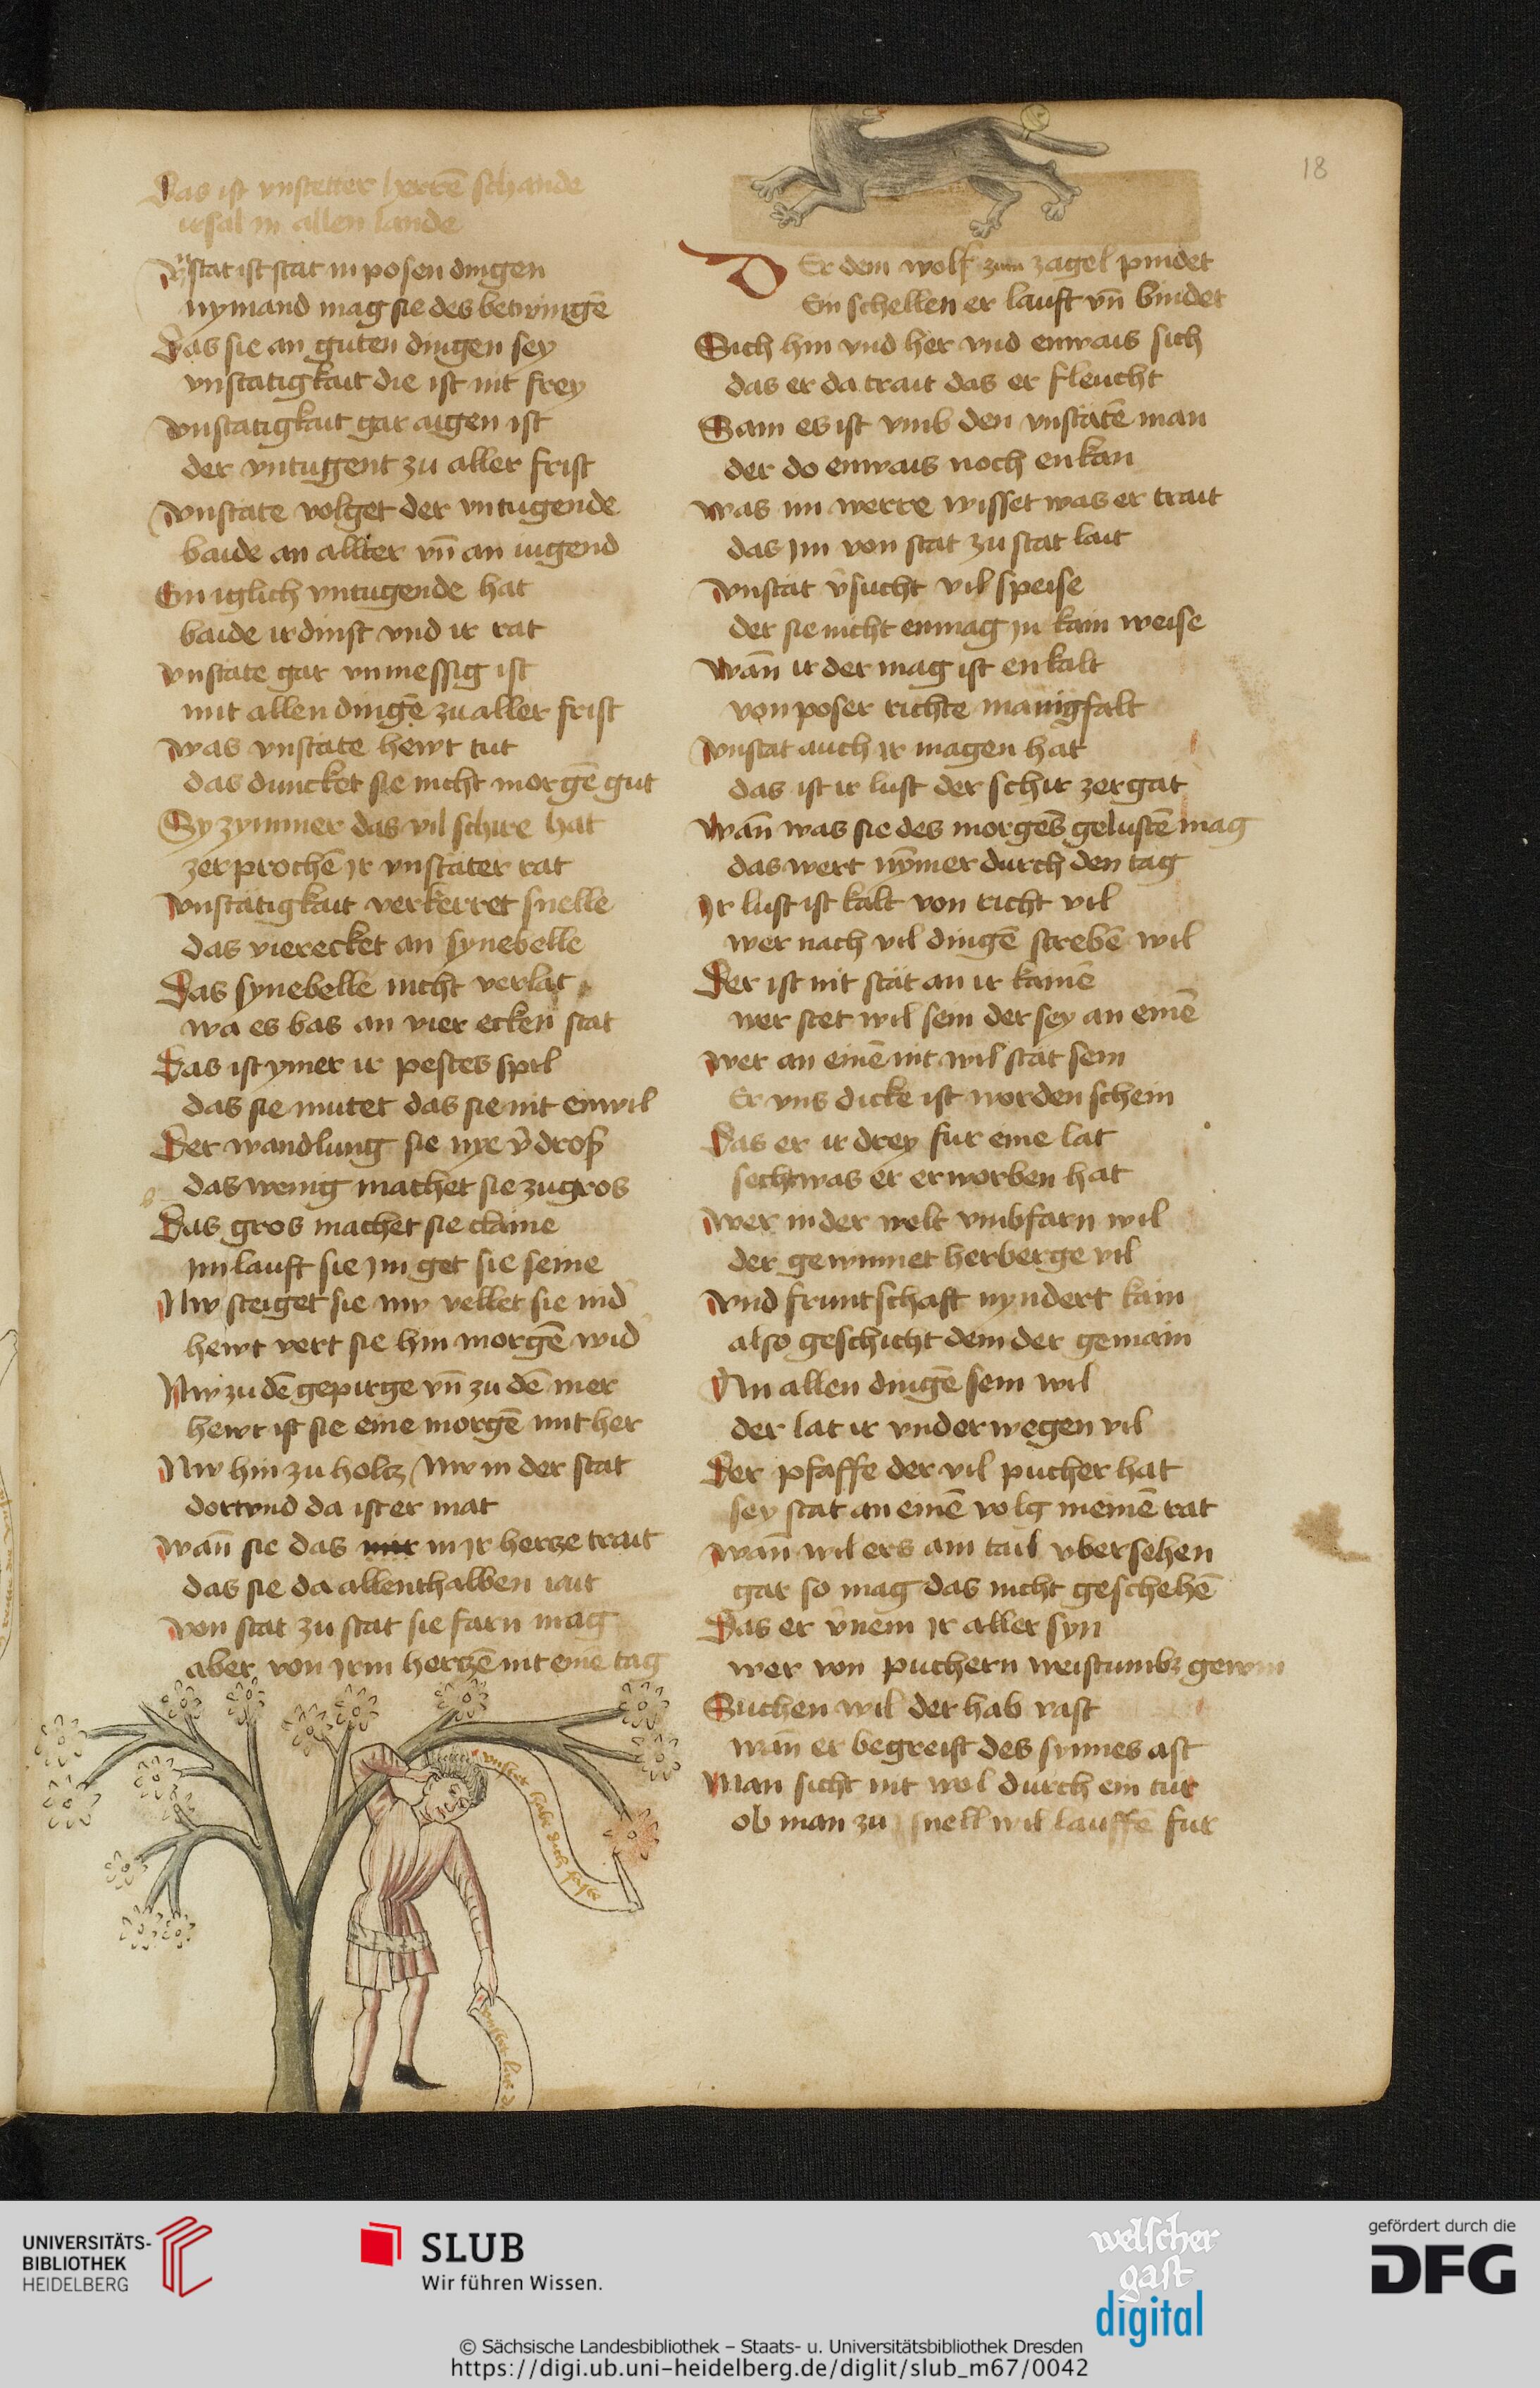 18
Das ist vnstetter herrē schande
irsal in allen lande
Vnstat ist stat in posen dingen
nymand mag sie des betwingē
Das sie an guten dingen sey
vnstatigkait die ist nit frey
vnstatigkait gar aigen ist
der vntugent zu aller frist
vnstate volget der vntugende
baide an allter vn̄ an iugend
Ein iglich vntugende hat
baide ir dinst vnd ir rat
vnstate gar vnmessig ist
mit allen dingē zu aller frist
was vnstate hewt tut
das duncket sie nicht morgē gut
Sy zymmer das vil schire hat
zerprochē Ir vnstäter rat
vnstätigkait verkerret snelle
das vierecket an synebelle
Das synebelle nicht verlat
wa es bas an vier ecken stat
Das ist ymer ir pestes spil
das sie mutet das sie nit enwil
Der wandlung sie nye v̄dross
das wenig machet sie zu gros
Das gros machet sie claine
Im lauft sie Im get sie seine
Nw steiget sie nw vellet sie nid
hewt vert sie hin morgē wid
Nw zu dē gepirge vn̄ zu dē mer
hewt ist sie eine morgē mit her
Nw hin zu holtz Nw in der stat
dort vnd da ist er mat
wan̄ sie das in Ir hertze trait
das sie da allenthalben iait
von stat zu stat sie farn mag
aber von Irm hertzē nit eine tag
vnstet habe dich faste
vnstet
Er dem wolf zum zagel pindet
Ein schellen er lauft vn̄ bindet
Sich hin vnd her vnd enwais sich
das er da trait das er fleucht
Sam es ist vmb den vnstätē man
der do enwais noch enkan
was im werre wisset was er trait
das Im von stat zu stat lait
vnstat v̄sucht vil speise
der sie nicht enmag In kain weise
wan̄ ir der mag ist enkalt
von poser richte manigfalt
vnstat auch Ir magen hat
das ist ir lust der schir zergat
wan̄ was sie des morgēs gelustē mag
das wert nȳmer durch den tag
Ir lust ist kalt von richt vil
wer nach vil dingē strebē wil
Der ist nit stät an ir kainē
wer stet wil sein der sey an einē
wer an einē nit wil stät sein
Er vns dicke ist worden schein
Das er ir drey fur eine lat
secht was er erworben hat
wer in der welt vmbfarn wil
der gewinnet herberge vil
vnd fruntschaft nyndert kain
also geschicht dem der gemain
An allen dingē sein wil
der lat ir vnderwegen vil
Der pfaffe der vil pucher hat
sey stat an einē volg meinē rat
wan̄ wil ers am tail vbersehen
gar so mag das nicht geschehē
Das er v̄nem Ir aller syn
wer von puchern weistumbs gewin
Suchen wil der hab rast
wan̄ er begreift des synnes ast
Man sicht nit wol durch ein tur
ob man zu snell wil lauffē fur
UNIVERSITÄTS-
BIBLIOTHEK
HEIDELBERG
SLUB
Wir führen Wissen.
welscher
gast
digital
gefördert durch die
DFG
© Sächsische Landesbibliothek – Staats- u. Universitätsbibliothek Dresden
https://digi.ub.uni-heidelberg.de/diglit/slub_m67/0042